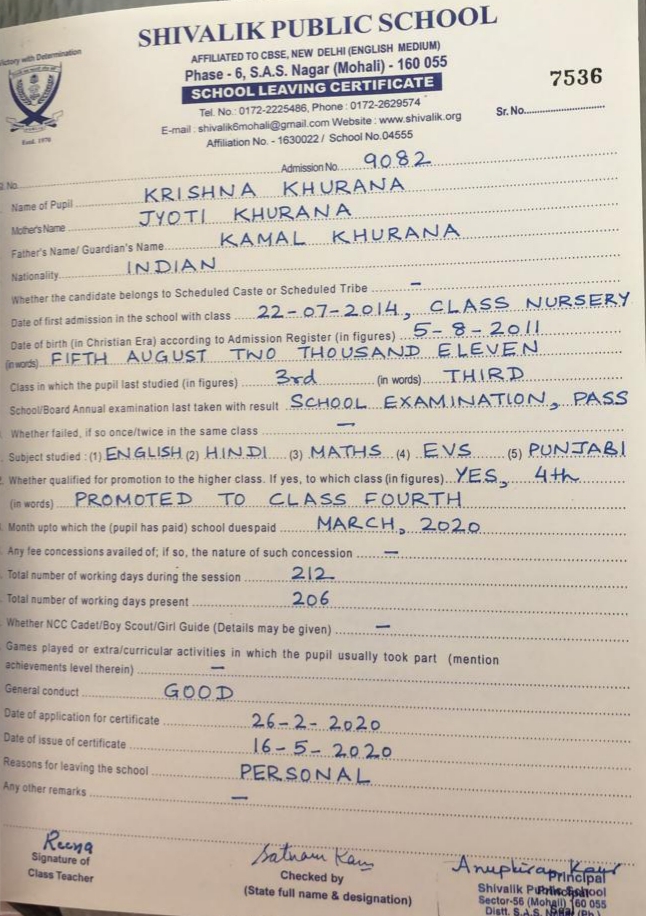 SHIVALIK PUBLIC SCHOOL
Victory with Determination
AFFILIATED TO CBSE, NEW DELHI (ENGLISH MEDIUM)
Phase - 6, S.A.S. Nagar (Mohali) - 160 055
SCHOOL LEAVING CERTIFICATE
7536
Estd. 1970
Tel. No.: 0172-2225486, Phone : 0172-2629574
E-mail : shivalik6mohali@gmail.com Website : www.shivalik.org
Sr. No.
Affiliation No. - 1630022 / School No.04555
No. Admission No. 9082
Name of Pupil KRISHNA KHURANA
Mother's Name JYOTI KHURANA
Father's Name/ Guardian's Name KAMAL KHURANA
Nationality INDIAN
Whether the candidate belongs to Scheduled Caste or Scheduled Tribe –
Date of first admission in the school with class 22-07-2014, CLASS NURSERY
Date of birth (in Christian Era) according to Admission Register (in figures) 5-8-2011
(in words) FIFTH AUGUST TWO THOUSAND ELEVEN
Class in which the pupil last studied (in figures) 3rd (in words) THIRD
School/Board Annual examination last taken with result SCHOOL EXAMINATION, PASS
Whether failed, if so once/twice in the same class –
Subject studied : (1) ENGLISH (2) HINDI (3) MATHS (4) EVS (5) PUNJABI
Whether qualified for promotion to the higher class. If yes, to which class (in figures) YES, 4th
(in words) PROMOTED TO CLASS FOURTH
Month upto which the (pupil has paid) school duespaid MARCH, 2020
Any fee concessions availed of; if so, the nature of such concession –
Total number of working days during the session 212
Total number of working days present 206
Whether NCC Cadet/Boy Scout/Girl Guide (Details may be given) –
Games played or extra/curricular activities in which the pupil usually took part (mention
achievements level therein) –
General conduct GOOD
Date of application for certificate 26-2-2020
Date of issue of certificate 16-5-2020
Reasons for leaving the school PERSONAL
Any other remarks –
Reena
Signature of
Class Teacher
Satnam Kaur
Checked by
(State full name & designation)
Kaur
Principal
Principal
Shivalik Public School
Sector-56 (Mohali) 160 055
Distt. S.A.S.